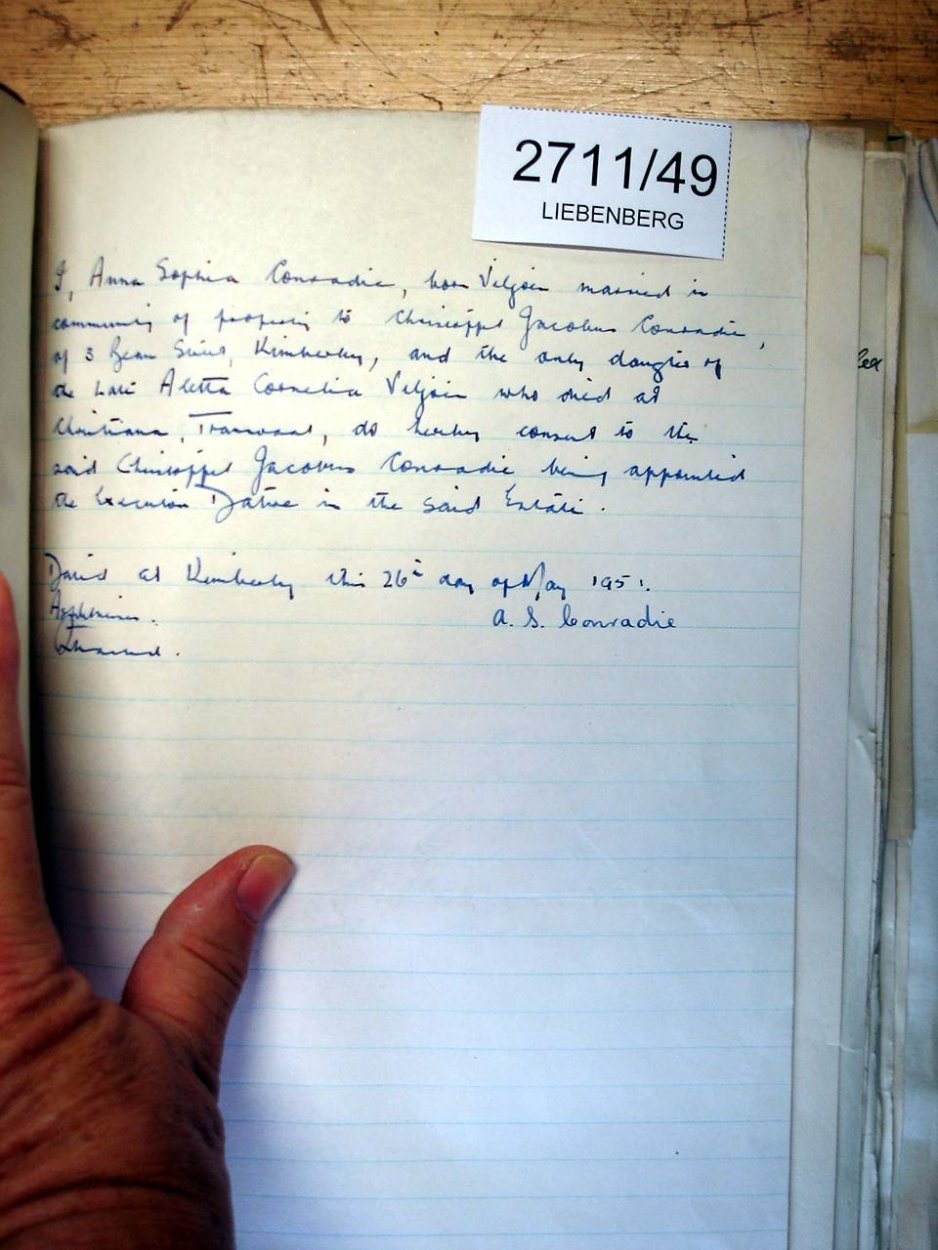 2711/49
LIEBENBERG
I, Anna Sophia Conradie, born Viljoen married in
community of property to Christoffel Jacobus Conradie,
of 3 Bean Street, Kimberley, and the only daughter of
the late Aletta Cornelia Viljoen who died at
Christiana, Transvaal, do hereby consent to the
said Christoffel Jacobus Conradie being appointed
the Executor Dative in the said Estate.
Dated at Kimberley this 26th day of May 1951.
A. S. Conradie